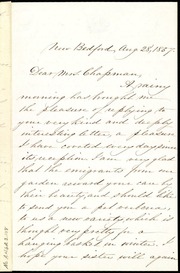 New Bedford, Aug 28, 1857.
Dear Mrs Chapman,
A rainy
morning has brought me
the pleasure of replying to
your very kind and deeply
interesting letter, a pleasure
I have coveted every day since
its reception. I am very glad
that the emigrants from our
garden reward your care by
their beauty, and should like
to send you a pot
to us a new variety, which is
thought very pretty for a
hanging basket in winter. I
hope your sister will again